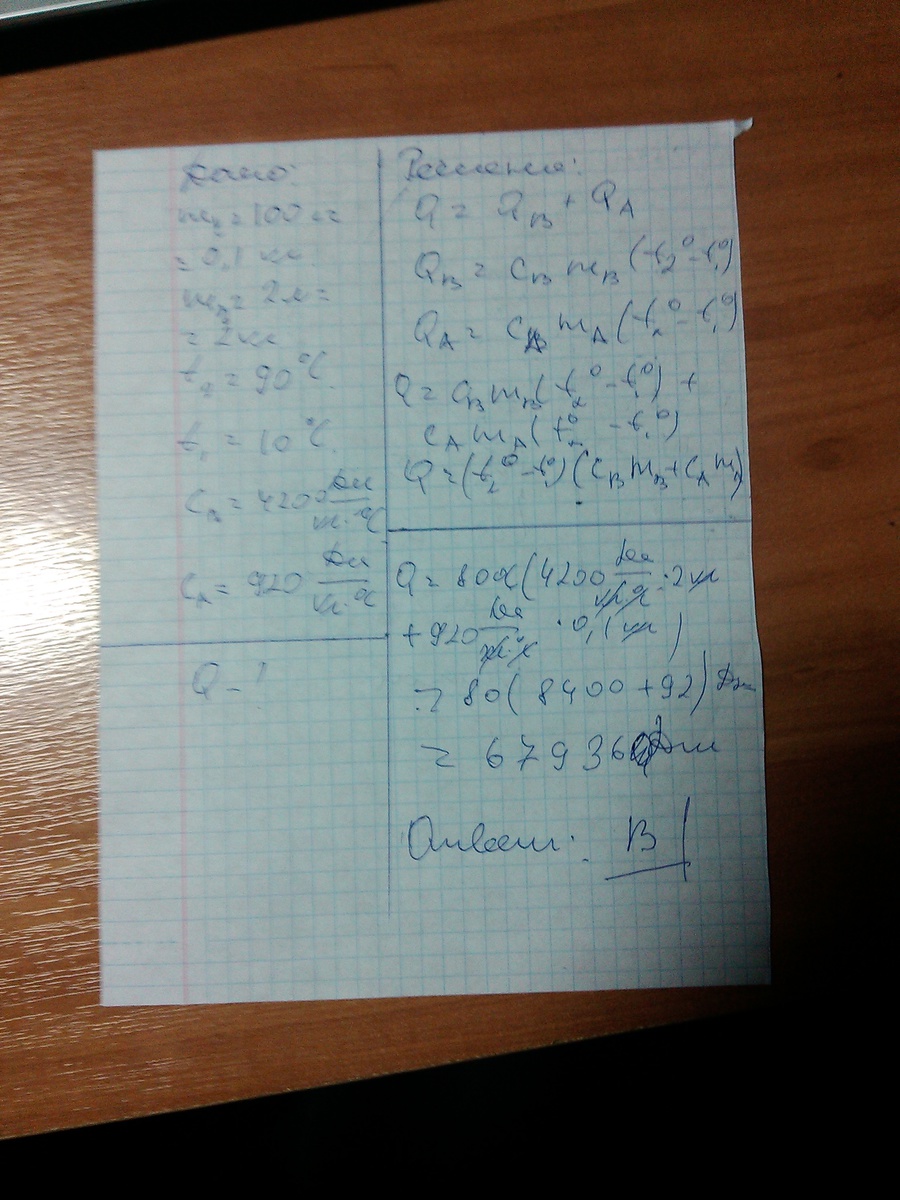 Дано:
= 0,1 кг
= 2 кг
t₂ = 90°C
t₁ = 10°C.
Cв = 4200 Дж/кг·°C
Cₐ = 920 Дж/кг·°C
Q - ?
Решение:
Q = Qв + QА
Qв = Cв mв (t₂° - t₁°)
QА = CА mА (t₂° - t₁°)
Q = Cв mв (t₂° - t₁°) +
CА mА (t₂° - t₁°)
Q = (t₂° - t₁°) (Cв mв + CА mА)
Q = 80°C (4200 Дж/кг·°C · 2 кг
+ 920 Дж/кг·°C · 0,1 кг)
= 80 (8400 + 92) Дж
= 679360 Дж
Ответ: В